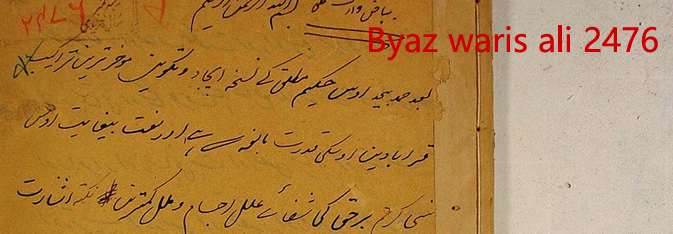 بیاض وارث علی بسم اللہ الرحمن الرحیم
۲۴۷۶
Byaz waris ali 2476
بعد حمد بیحد اوس حکیم مطلق کے نسخہ ایجاد و تکوین موخر ترین تراکیب
قرابادین اوسکی قدرت بالغہ سے ہے اور نعت بیغایت اوس
نبی کریم برحق کی شفائے علل اجسام و ملل کمترین نکتہ اشارت